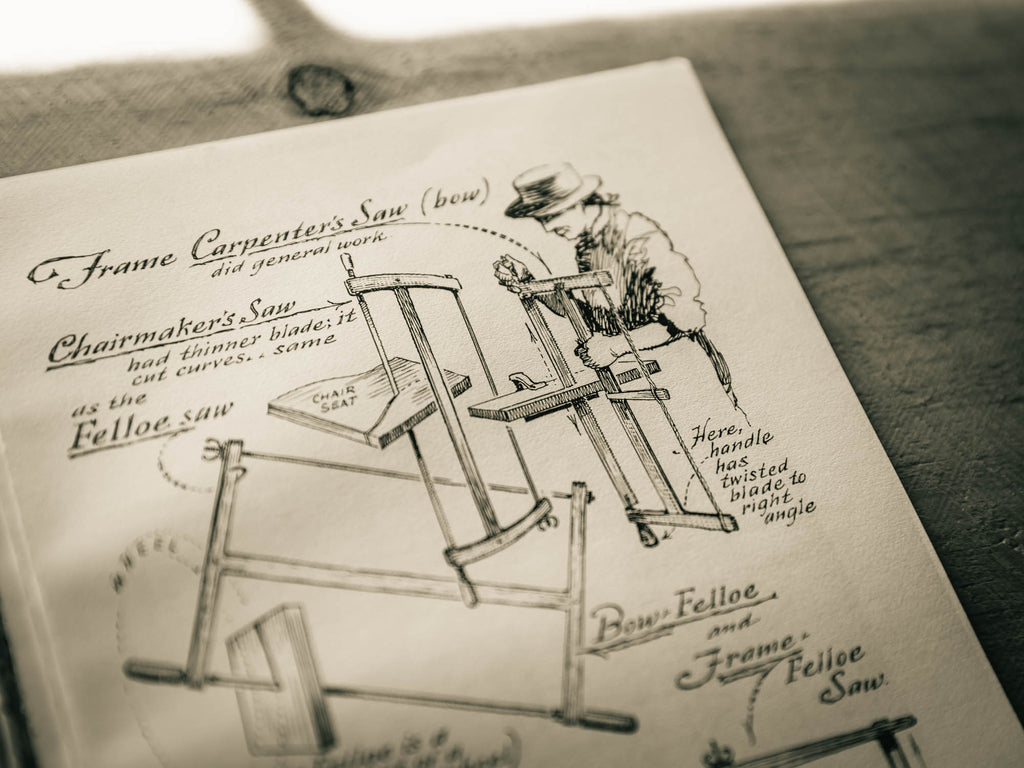 Frame Carpenter's Saw (bow)
did general work
Chairmaker's Saw
had thinner blade; it
cut curves... same
as the
Felloe saw
CHAIR
SEAT
Here,
handle
has
twisted
blade to
right
angle
WHEEL
Bow-Felloe
and
Frame-
Felloe
Saw.